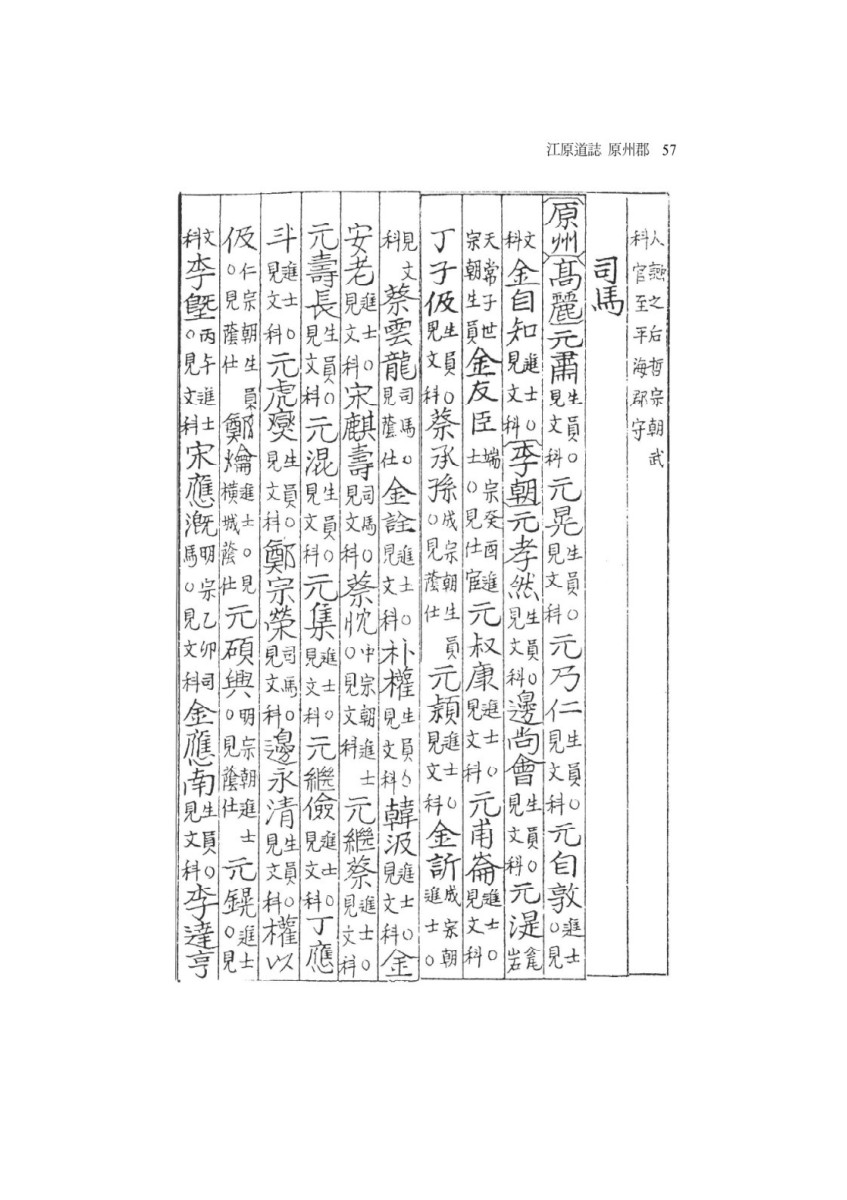 江原道誌 原州郡 57
人 勉之后 哲宗朝武科 官至平海郡守
司馬
原州 高麗 元肅 生員○見文科 元晃 生員○見文科 元乃仁 生員○見文科 元自敦 進士○見
文科 金自知 進士○見文科 李朝 元孝然 生員○見文科 邊尚會 生員○見文科 元湜 篒岩
天常子 世宗朝生員 金友臣 端宗癸酉進士○見仕宦 元叔康 進士○見文科 元甫崙 進士○見文科
丁子伋 生員○見文科 蔡承孫 成宗朝生員○見蔭仕 元潁 進士○見文科 金訢 成宗朝進士○
見文科 蔡雲龍 司馬○見蔭仕 金詮 進士○見文科 朴權 生員○見文科 韓汲 進士○見文科 金
安老 進士○見文科 宋麒壽 司馬○見文科 蔡忱 中宗朝進士○見文科 元繼蔡 進士○見文科
元壽長 生員○見文科 元混 生員○見文科 元集 進士○見文科 元繼儉 進士○見文科 丁應
斗 進士○見文科 元虎燮 生員○見文科 鄭宗榮 司馬○見文科 邊永清 生員○見文科 權以
伋 仁宗朝生員○見蔭仕 鄭爚 進士○見橫城蔭仕 元碩興 明宗朝進士○見蔭仕 元鎤 進士○見
文科 李墍 丙午進士○見文科 宋應漑 明宗乙卯司馬○見文科 金應南 生員○見文科 李達亨